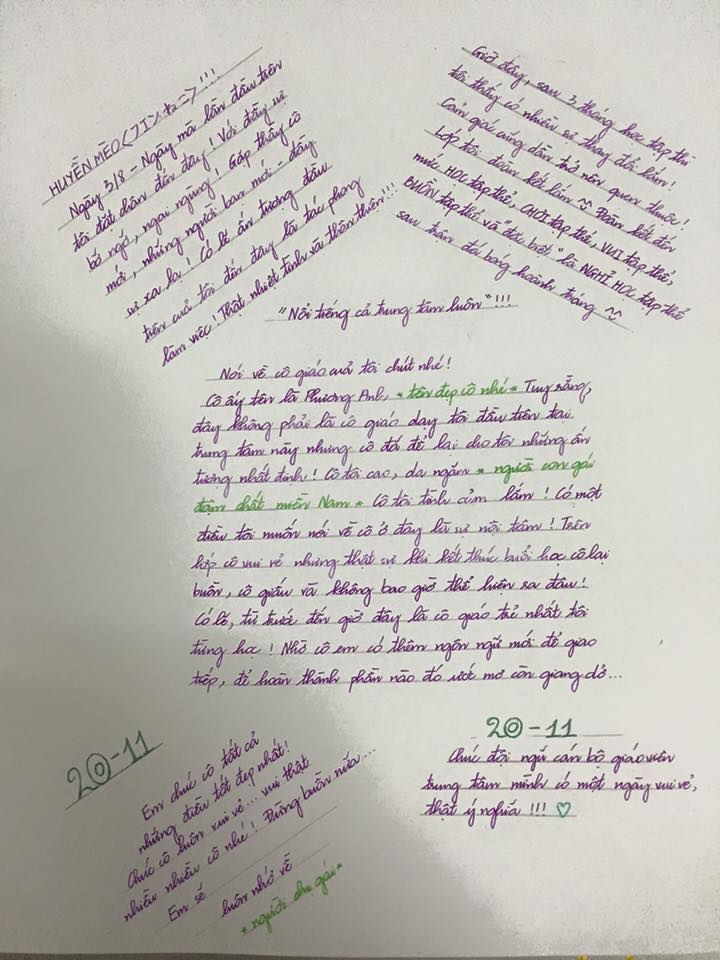 HUYỄN MÈO (フエンねこ) !!!
Ngày 3/8 - Ngày mà lần đầu tiên
tôi đặt chân đến đây! Với đầy sự
bỡ ngỡ, ngại ngùng! Gặp thầy cô
mới, những người bạn mới - đầy
sự xa lạ! Có lẽ ấn tượng đầu
tiên của tôi đến đây là tác phong
làm việc! Thật nhiệt tình và thân thiện!!!
Giờ đây, sau 3 tháng học tập thì
tôi thấy có nhiều sự thay đổi lắm!
Cảm giác cũng dần trở nên quen thuộc!
Lớp tôi đoàn kết lắm ~ Đoàn kết đến
mức HỌC tập thể, CHƠI tập thể, VUI tập thể,
BUỒN tập thể và "đặc biệt" là NGHỈ HỌC tập thể
sau trận đá bóng hoành tráng ~
"Nổi tiếng cả trung tâm luôn"!!!
Nói về cô giáo của tôi chút nhé!
Cô ấy tên là Phương Anh, * tên đẹp cô nhé * Tuy rằng,
đây không phải là cô giáo dạy tôi đầu tiên tại
trung tâm này nhưng cô đã để lại cho tôi những ấn
tượng nhất định! Cô tôi cao, da ngăm * người con gái
đậm chất miền Nam * Cô tôi tình cảm lắm! Có một
điều tôi muốn nói về cô ở đây là sự nội tâm! Trên
lớp cô vui vẻ nhưng thật sự khi kết thúc buổi học cô lại
buồn, cô giấu và không bao giờ thể hiện ra đâu!
Có lẽ, từ trước đến giờ đây là cô giáo trẻ nhất tôi
từng học! Nhờ cô em có thêm ngôn ngữ mới để giao
tiếp, để hoàn thành phần nào đó ước mơ còn giang dở...
20-11
Em chúc cô tất cả
những điều tốt đẹp nhất!
Chúc cô luôn vui vẻ... vui thật
nhiều nhiều cô nhé! Đừng buồn nữa...
Em sẽ
luôn nhớ về
* người chị gái *
20-11
Chúc đội ngũ cán bộ giáo viên
trung tâm mình có một ngày vui vẻ,
thật ý nghĩa !!! ♡